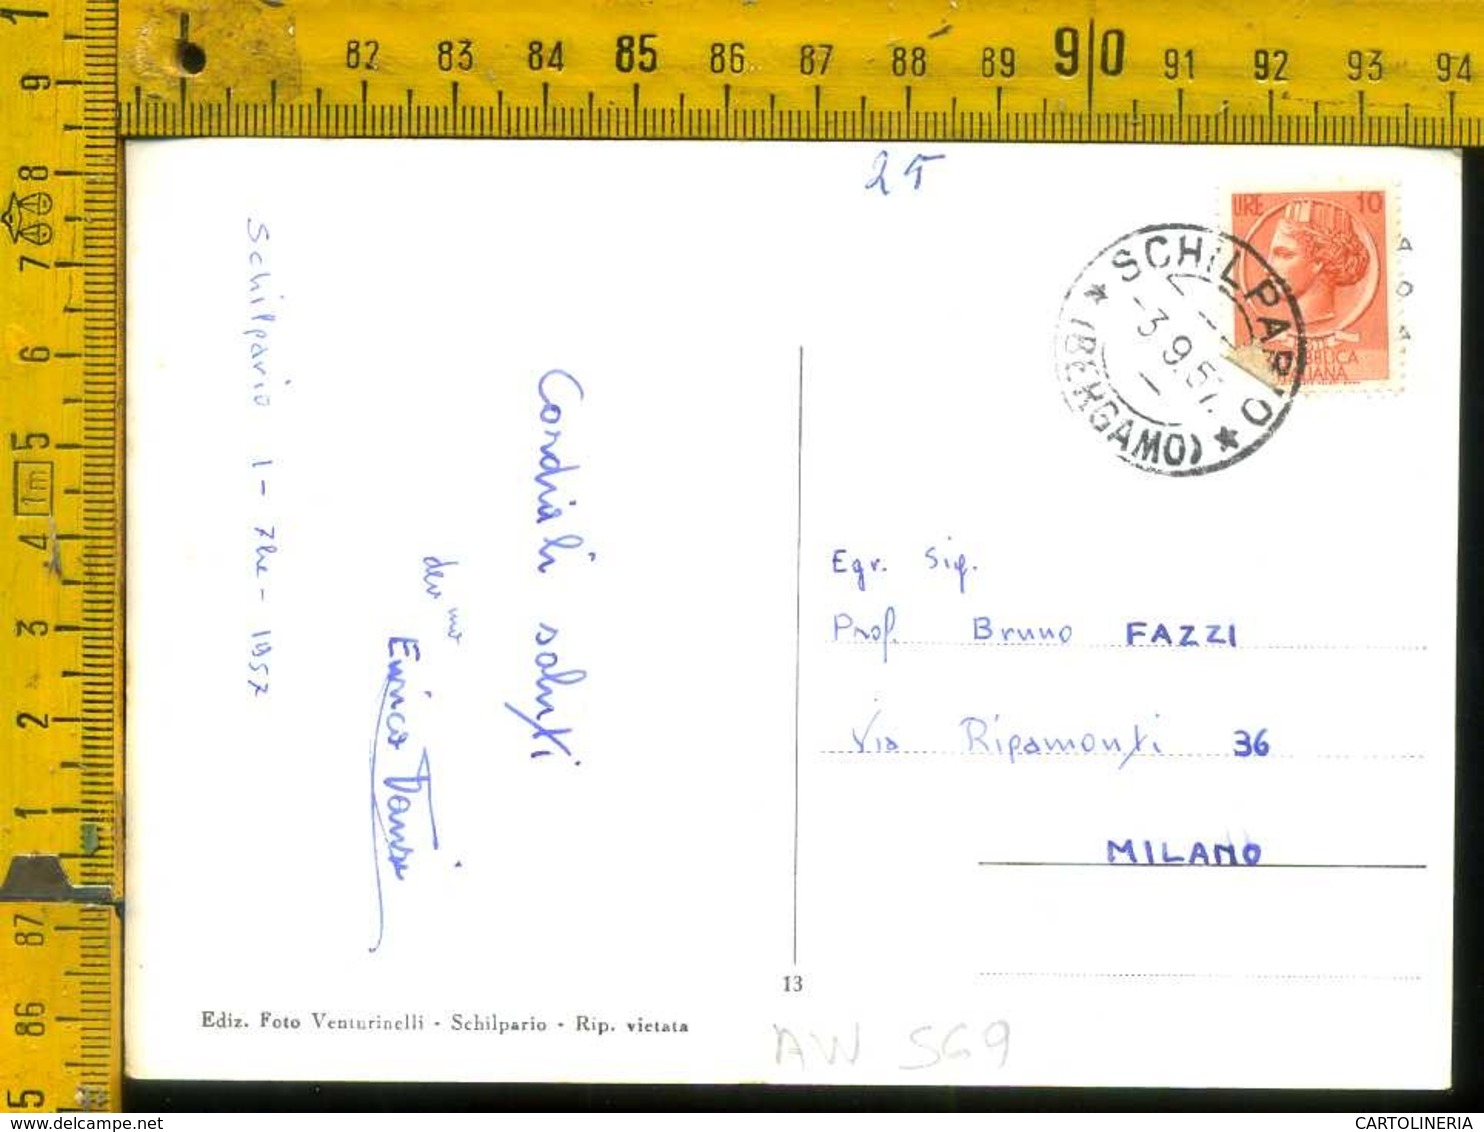 82 83 84 85 86 87 88 89 90 91 92 93 94
1
9
8
7
6
5
1m
4
3
2
1
87
86
5
2 5
LIRE 10
SCHILPARIO
-3.9.57.
(BERGAMO)
Schilpario 1 - 7bre - 1957
Cordiali saluti
dev mo
Enrico
Egr. Sig.
Prof. Bruno FAZZI
Via Ripamonti 36
MILANO
13
Ediz. Foto Venturinelli - Schilpario - Rip. vietata
AW 569
CARTOLINERIA